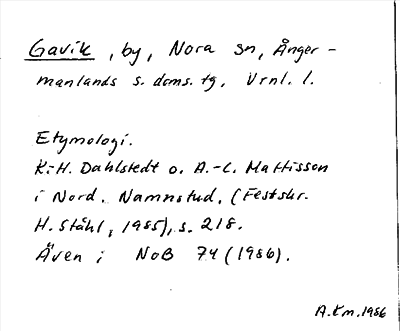 Gavik, by, Nora sn, Ånger-
manlands s. doms. tg, Vrnl. l.
Etymologi.
K.-H. Dahlstedt o. A.-C. Mattisson
i Nord. Namnstud. (Festskr.
H. Ståhl, 1985), s. 218.
Även i NoB 74 (1986).
A.Km.1986